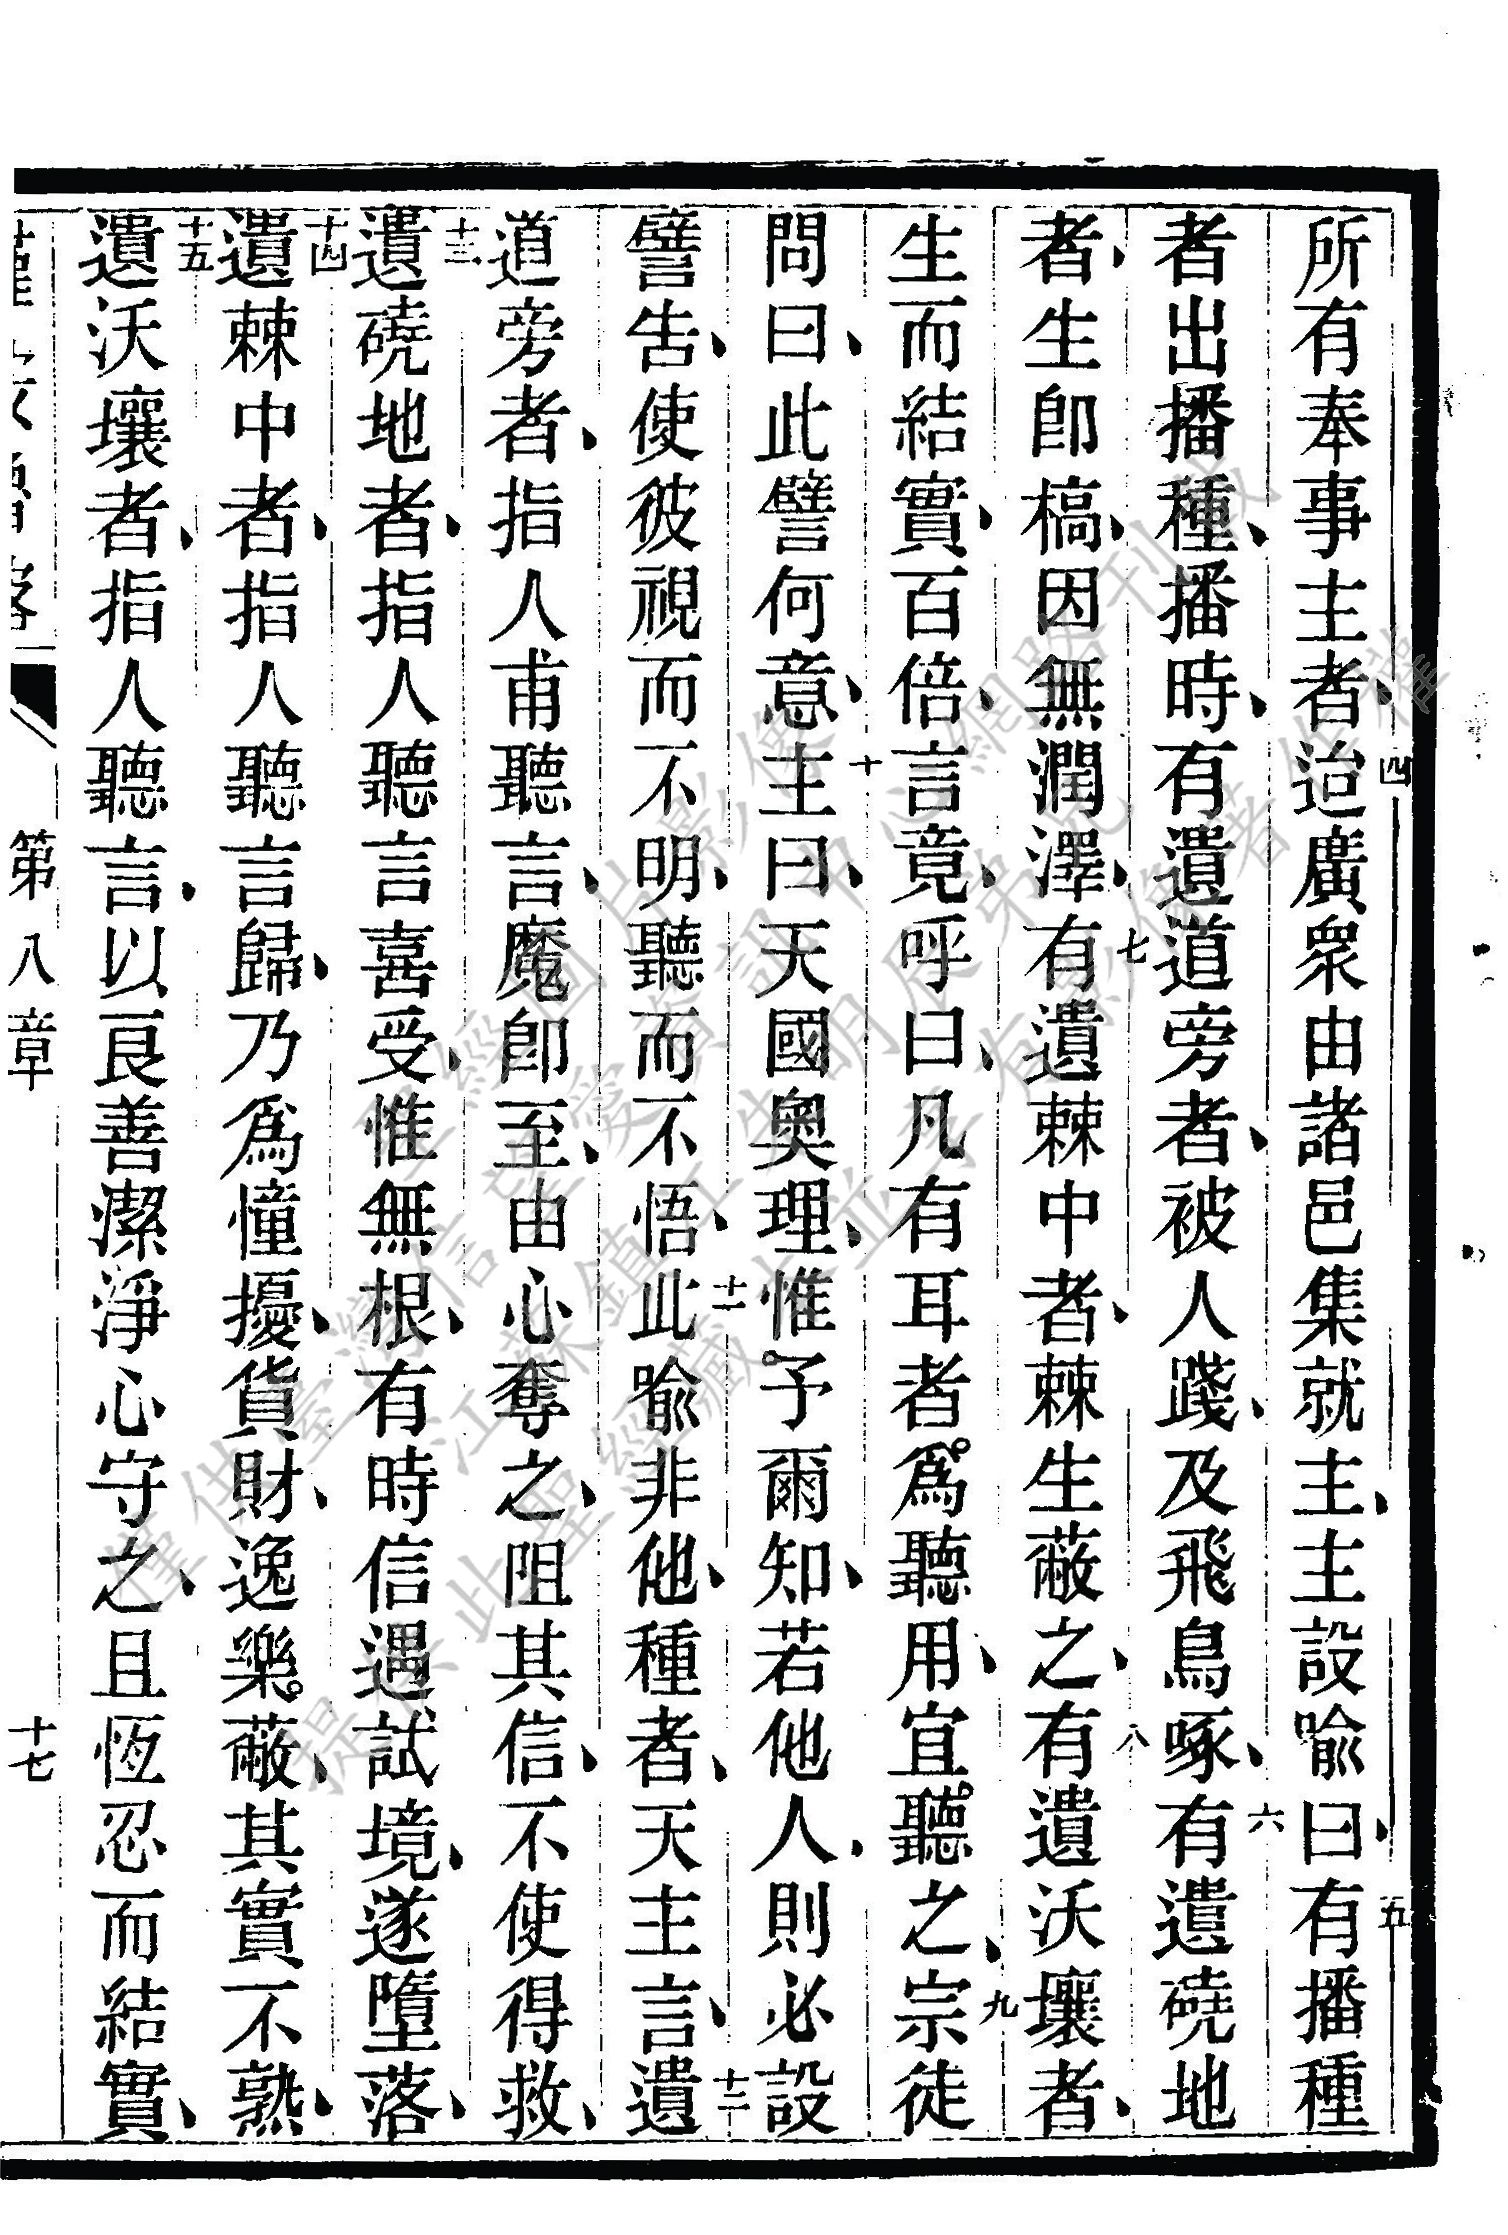 所有奉事主者、四迨廣衆由諸邑集就主、主設喻曰、五有播種
者出播種、播時、有遺道旁者、被人踐、及飛鳥啄、六有遺磽地
者、生卽槁、因無潤澤、七有遺棘中者、棘生蔽之、八有遺沃壤者、
生而結實、百倍、言竟、呼曰、凡有耳者。爲聽用、宜聽。之、九宗徒
問曰、此譬何意、十主曰、天國奧理、惟。予爾知、若他人、則必設
譬告、使彼視而不明、聽而不悟、十一此喻非他、種者、天主言、十二遺
道旁者、指人甫聽言、魔卽至、由心奪之、阻其信、不使得救、
十三遺磽地者、指人聽言喜受、惟無根、有時信遇試境、遂墮落、
十四遺棘中者、指人聽言歸、乃爲憧擾、貨財、逸樂。蔽、其實不熟、
十五遺沃壤者、指人聽言、以良善潔淨心守之、且恆忍而結實、
第八章 十七
聖經圖片影像
僅供臺灣信望愛資訊中心網路刊載
江蘇鎮江朱明辰弟兄
提供此聖經藏本並享有影像著作權